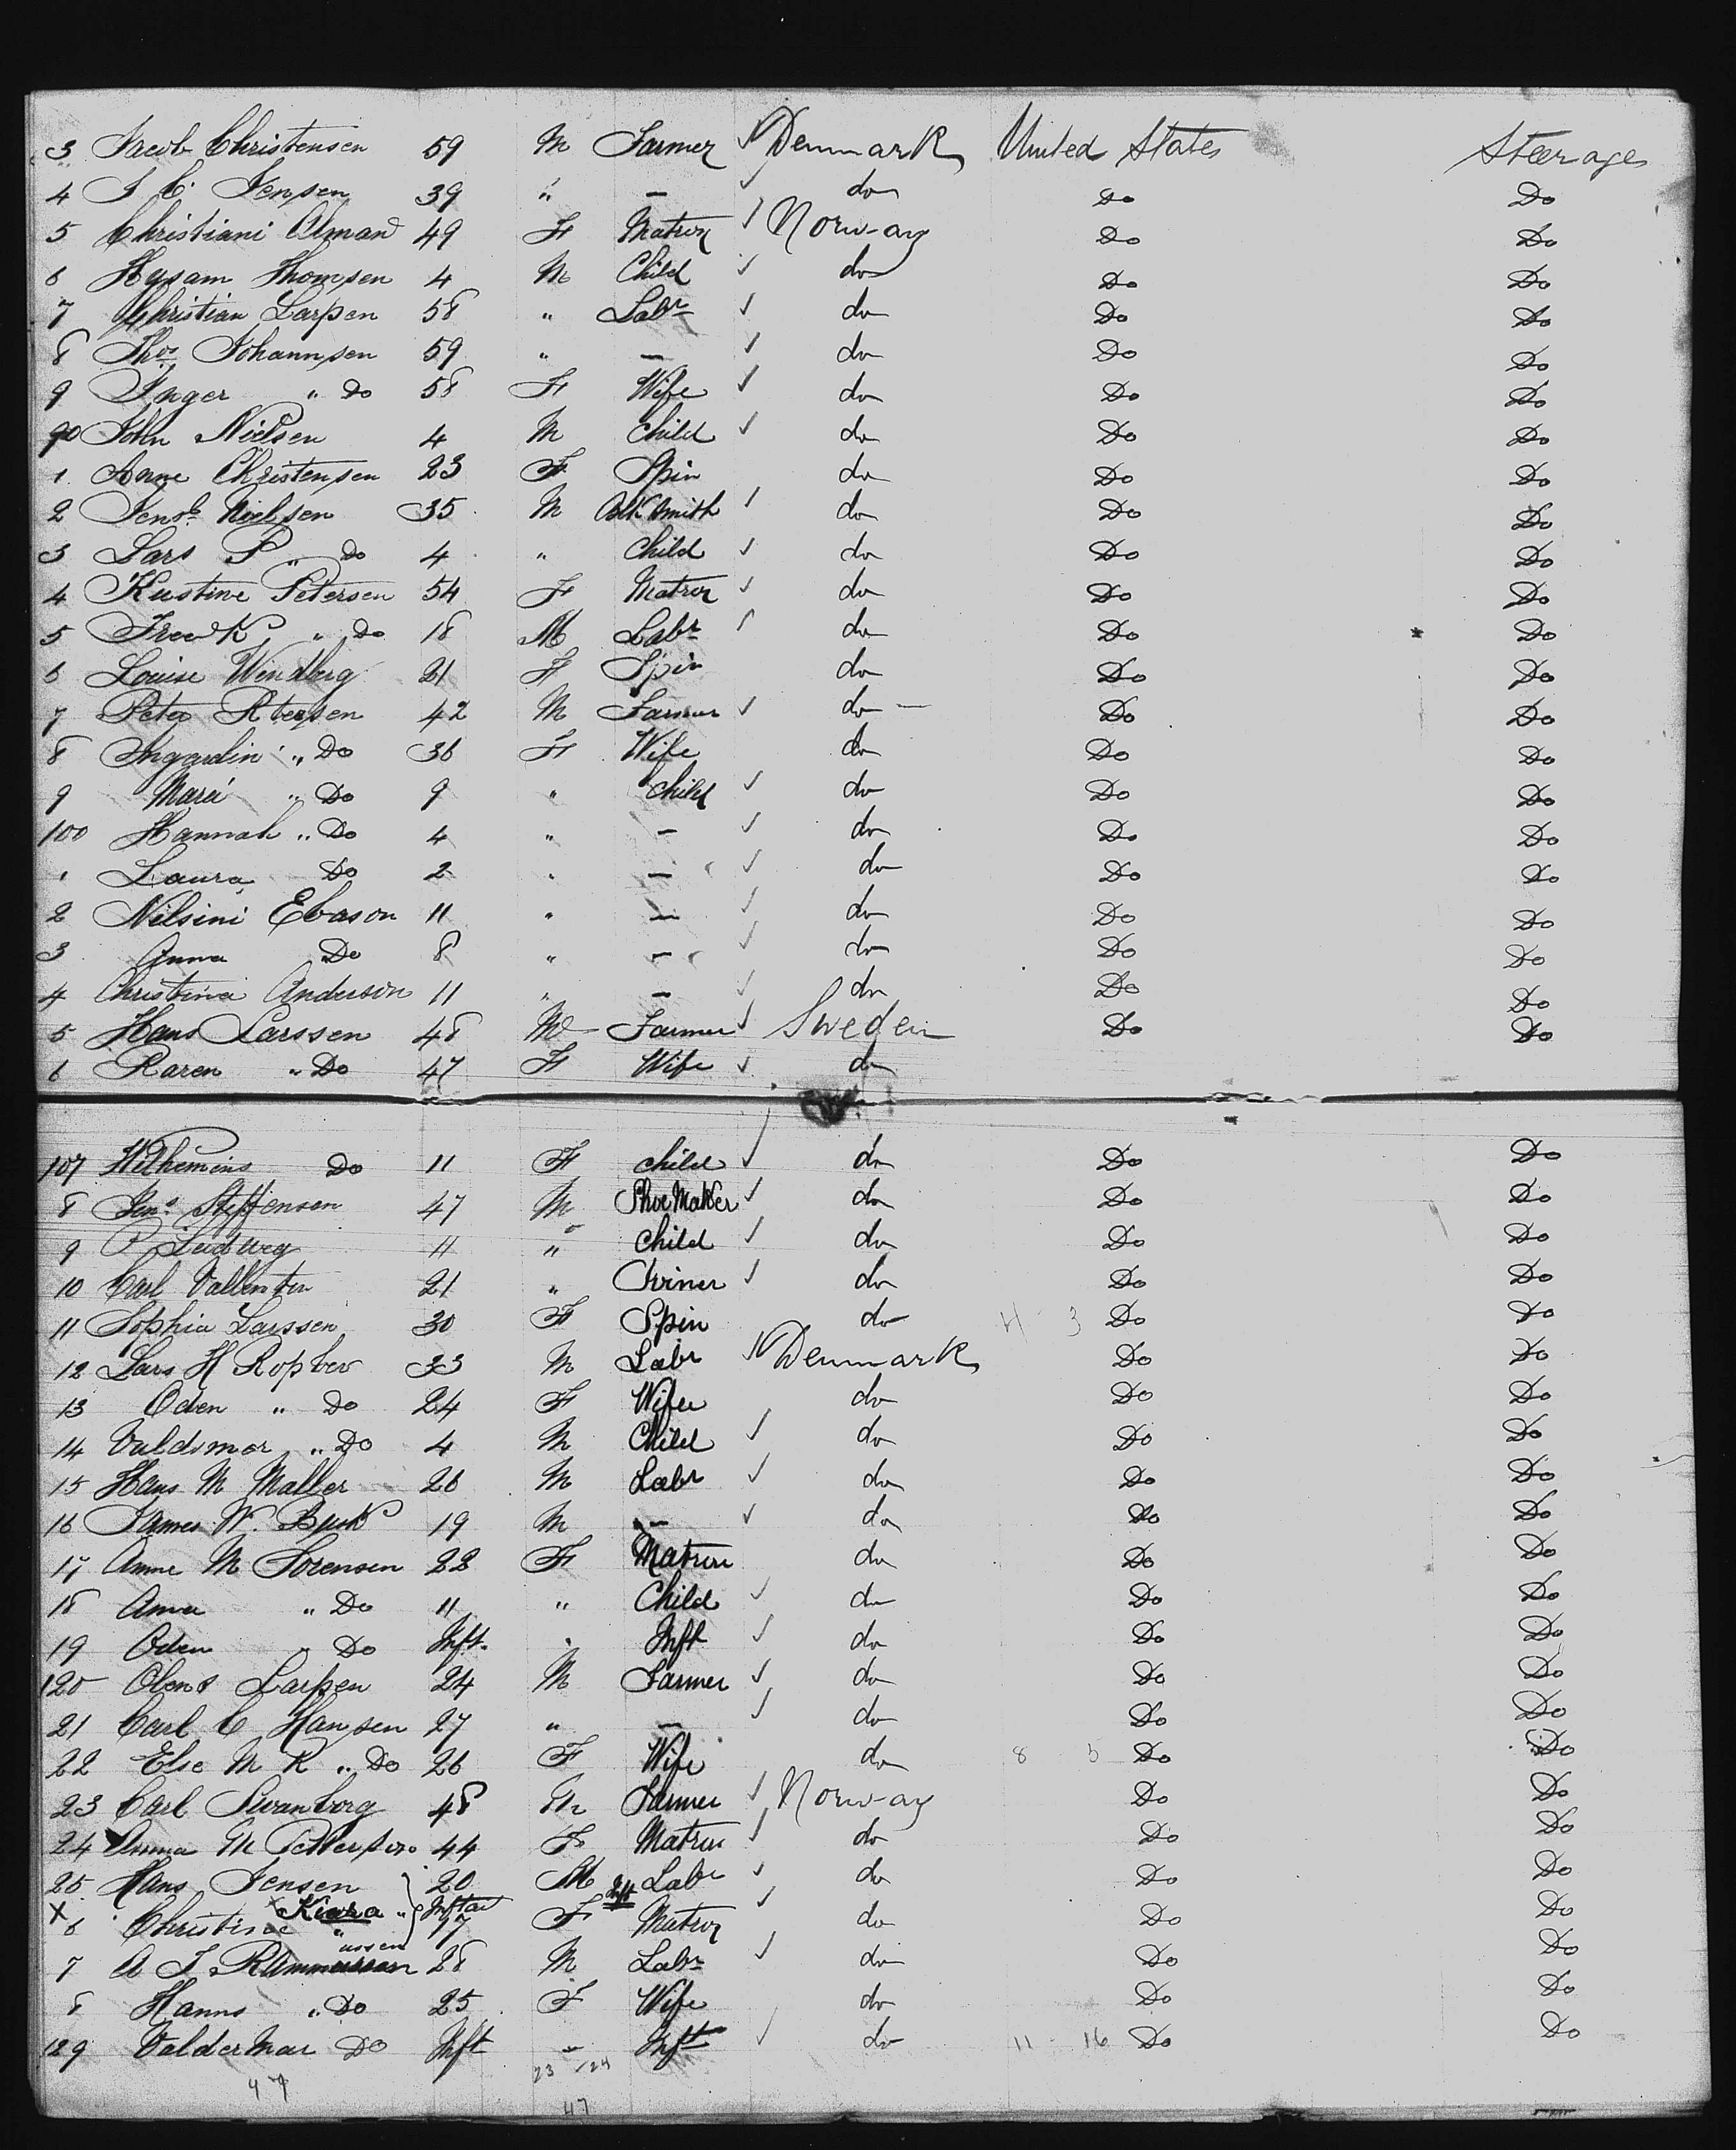 3 Jacob Christensen 59 M Farmer ✓ Denmark United States Steerage
4 J C. Jensen 39 " — ✓ do Do Do
5 Christiani Alman 49 F Matron ✓ Norway Do Do
6 Hysam Thomsen 4 M Child ✓ do Do Do
7 Christian Larsen 58 " Labr ✓ do Do Do
8 Thos Johannsen 59 " — ✓ do Do Do
9 Inger " Do 58 F Wife ✓ do Do Do
90 John Nielsen 4 M Child ✓ do Do Do
1 Anne Christensen 23 F Spin do Do Do
2 Nielsen 35 M Blk Smith ✓ do Do Do
3 Lars P " do 4 " Child ✓ do Do Do
4 Kustine Petersen 54 F Matron ✓ do Do Do
5 Fredk " Do 18 M Labr ✓ do Do Do
6 Louise Windberg 21 F Spin do Do Do
7 Peter 42 M Farmer ✓ do — Do Do
8 Ingardin " Do 36 F Wife do Do Do
9 Mareí " Do 9 " Child ✓ do Do Do
100 Hannah " Do 4 " — ✓ do Do Do
1 Laura Do 2 " — ✓ do Do Do
2 Nilsini Ebason 11 " — ✓ do Do Do
3 Anna Do 8 " — ✓ do Do Do
4 Christina Anderson 11 " — ✓ do Do Do
5 Hans Larssen 48 M Farmer ✓ Sweden Do Do
6 Karen " Do 47 F Wife ✓ do
107 Wilhemins Do 11 F child ✓ do Do Do
8 Jens Steffensen 47 M Shoe Maker ✓ do Do Do
9 P Ludweg 11 " Child ✓ do Do Do
10 Carl Vallentin 21 " Joiner ✓ do Do Do
11 Sophia Larssen 30 F Spin do 4 3 Do Do
12 Lars H 33 M Labr ✓ Denmark Do Do
13 Oden " Do 24 F Wife do Do Do
14 Valdimar " Do 4 M Child ✓ do Do Do
15 Hans M Maller 26 M Labr ✓ do Do Do
16 James W. Busk 19 M — ✓ do Do Do
17 Anne M Sorensen 22 F Matron do Do Do
18 Ama " Do 11 " Child ✓ do Do Do
19 Oden " Do Inft. " Inft ✓ do Do Do
120 Larsen 24 M Farmer ✓ do Do Do
21 Carl C Hansen 27 " — ✓ do Do Do
22 Else M R " Do 26 F Wife do 8 5 Do Do
23 Carl Swanborg 48 M Farmer ✓ Norway Do Do
24 Anna M 44 F Matron ✓ do Do Do
25 Hans Jensen 20 M Labr ✓ do Do Do
X Kiara " Inft
6 Christine " 17 F Matron ✓ do Do Do
ussen
7 A J 28 M Labr ✓ do Do Do
8 Hanns " Do 25 F Wife do Do Do
129 Valdermar Do Inft " Inft ✓ do 11 - 16 Do Do
47 23 / 24
47